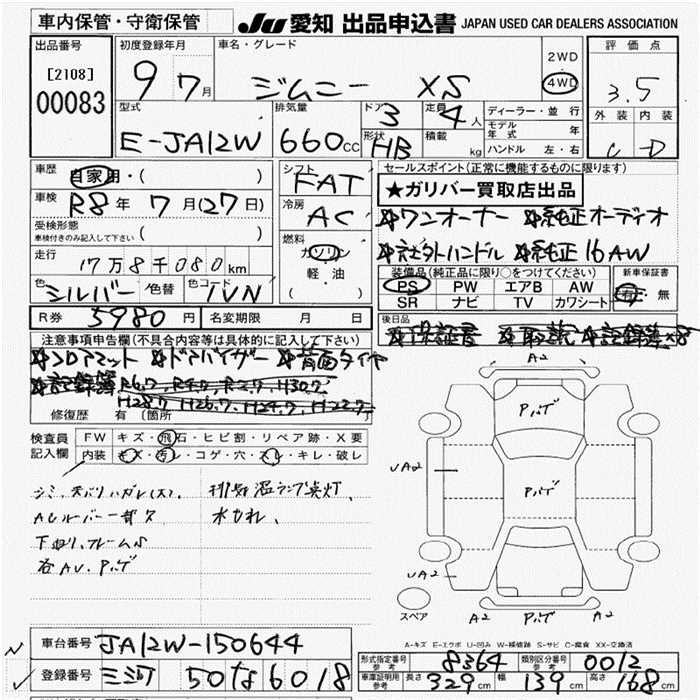 車内保管・守衛保管 JU 愛知 出品申込書 JAPAN USED CAR DEALERS ASSOCIATION
出品番号
[2108]
00083
初度登録年月
9 7月
車名・グレード
ジムニー XS
2WD
4WD
評価点
3.5
外装 内装
C D
型式
E-JA12W
排気量
660cc
ドア
3
定員
4人
形状
HB
積載
kg
ディーラー・並行
モデル年式 年
ハンドル 左・右
車歴
自家用・( )
車検
R8年7月(27日)
受検形態
車検付きのみ記入して下さい ( )
走行
17万8千080km
色
シルバー
色替
色コード
1VN
シフト
FAT
冷房
AC
燃料
ガソリン
軽油
( )
セールスポイント(正常に機能するものに限ります)
★ガリバー買取店出品
ワンオーナー 純正オーディオ
社外ハンドル 純正16AW
装備品(純正品に限り○をつけてください)
PS PW エアB AW
SR ナビ TV カワシート
新車保証書
有・無
R券 5980 名変期限 月 日
後日品
保証書 取説 記録簿×8
注意事項申告欄(不具合内容等は具体的に記入して下さい)
フロアマット ドアバイザー 背面タイヤ
記録簿 R6.7, R4.7, R2.7, H30.7
H28.7, H26.7, H24.7, H22.7
修復歴 有(箇所 )
検査員記入欄
FW キズ・飛石・ヒビ割・リペア跡・X要
内装 キズ・汚レ・コゲ・穴・スレ・キレ・破レ
排気温ランプ点灯、
下回り、フレームS
各AU.Pハゲ
A2
Pハゲ
UA2
Pハゲ
UA2
スペア
A2 Pハゲ A2
A-キズ E-エクボ U-凹み W-補修跡 S-サビ C-腐食 XX-交換済
車台番号 JA12W-150644
登録番号 三河 50 な 6018
形式指定番号 参考 8364 類別区分番号 参考 0012
車庫証明用 参考 長さ 329cm 幅 139cm 高さ 168cm